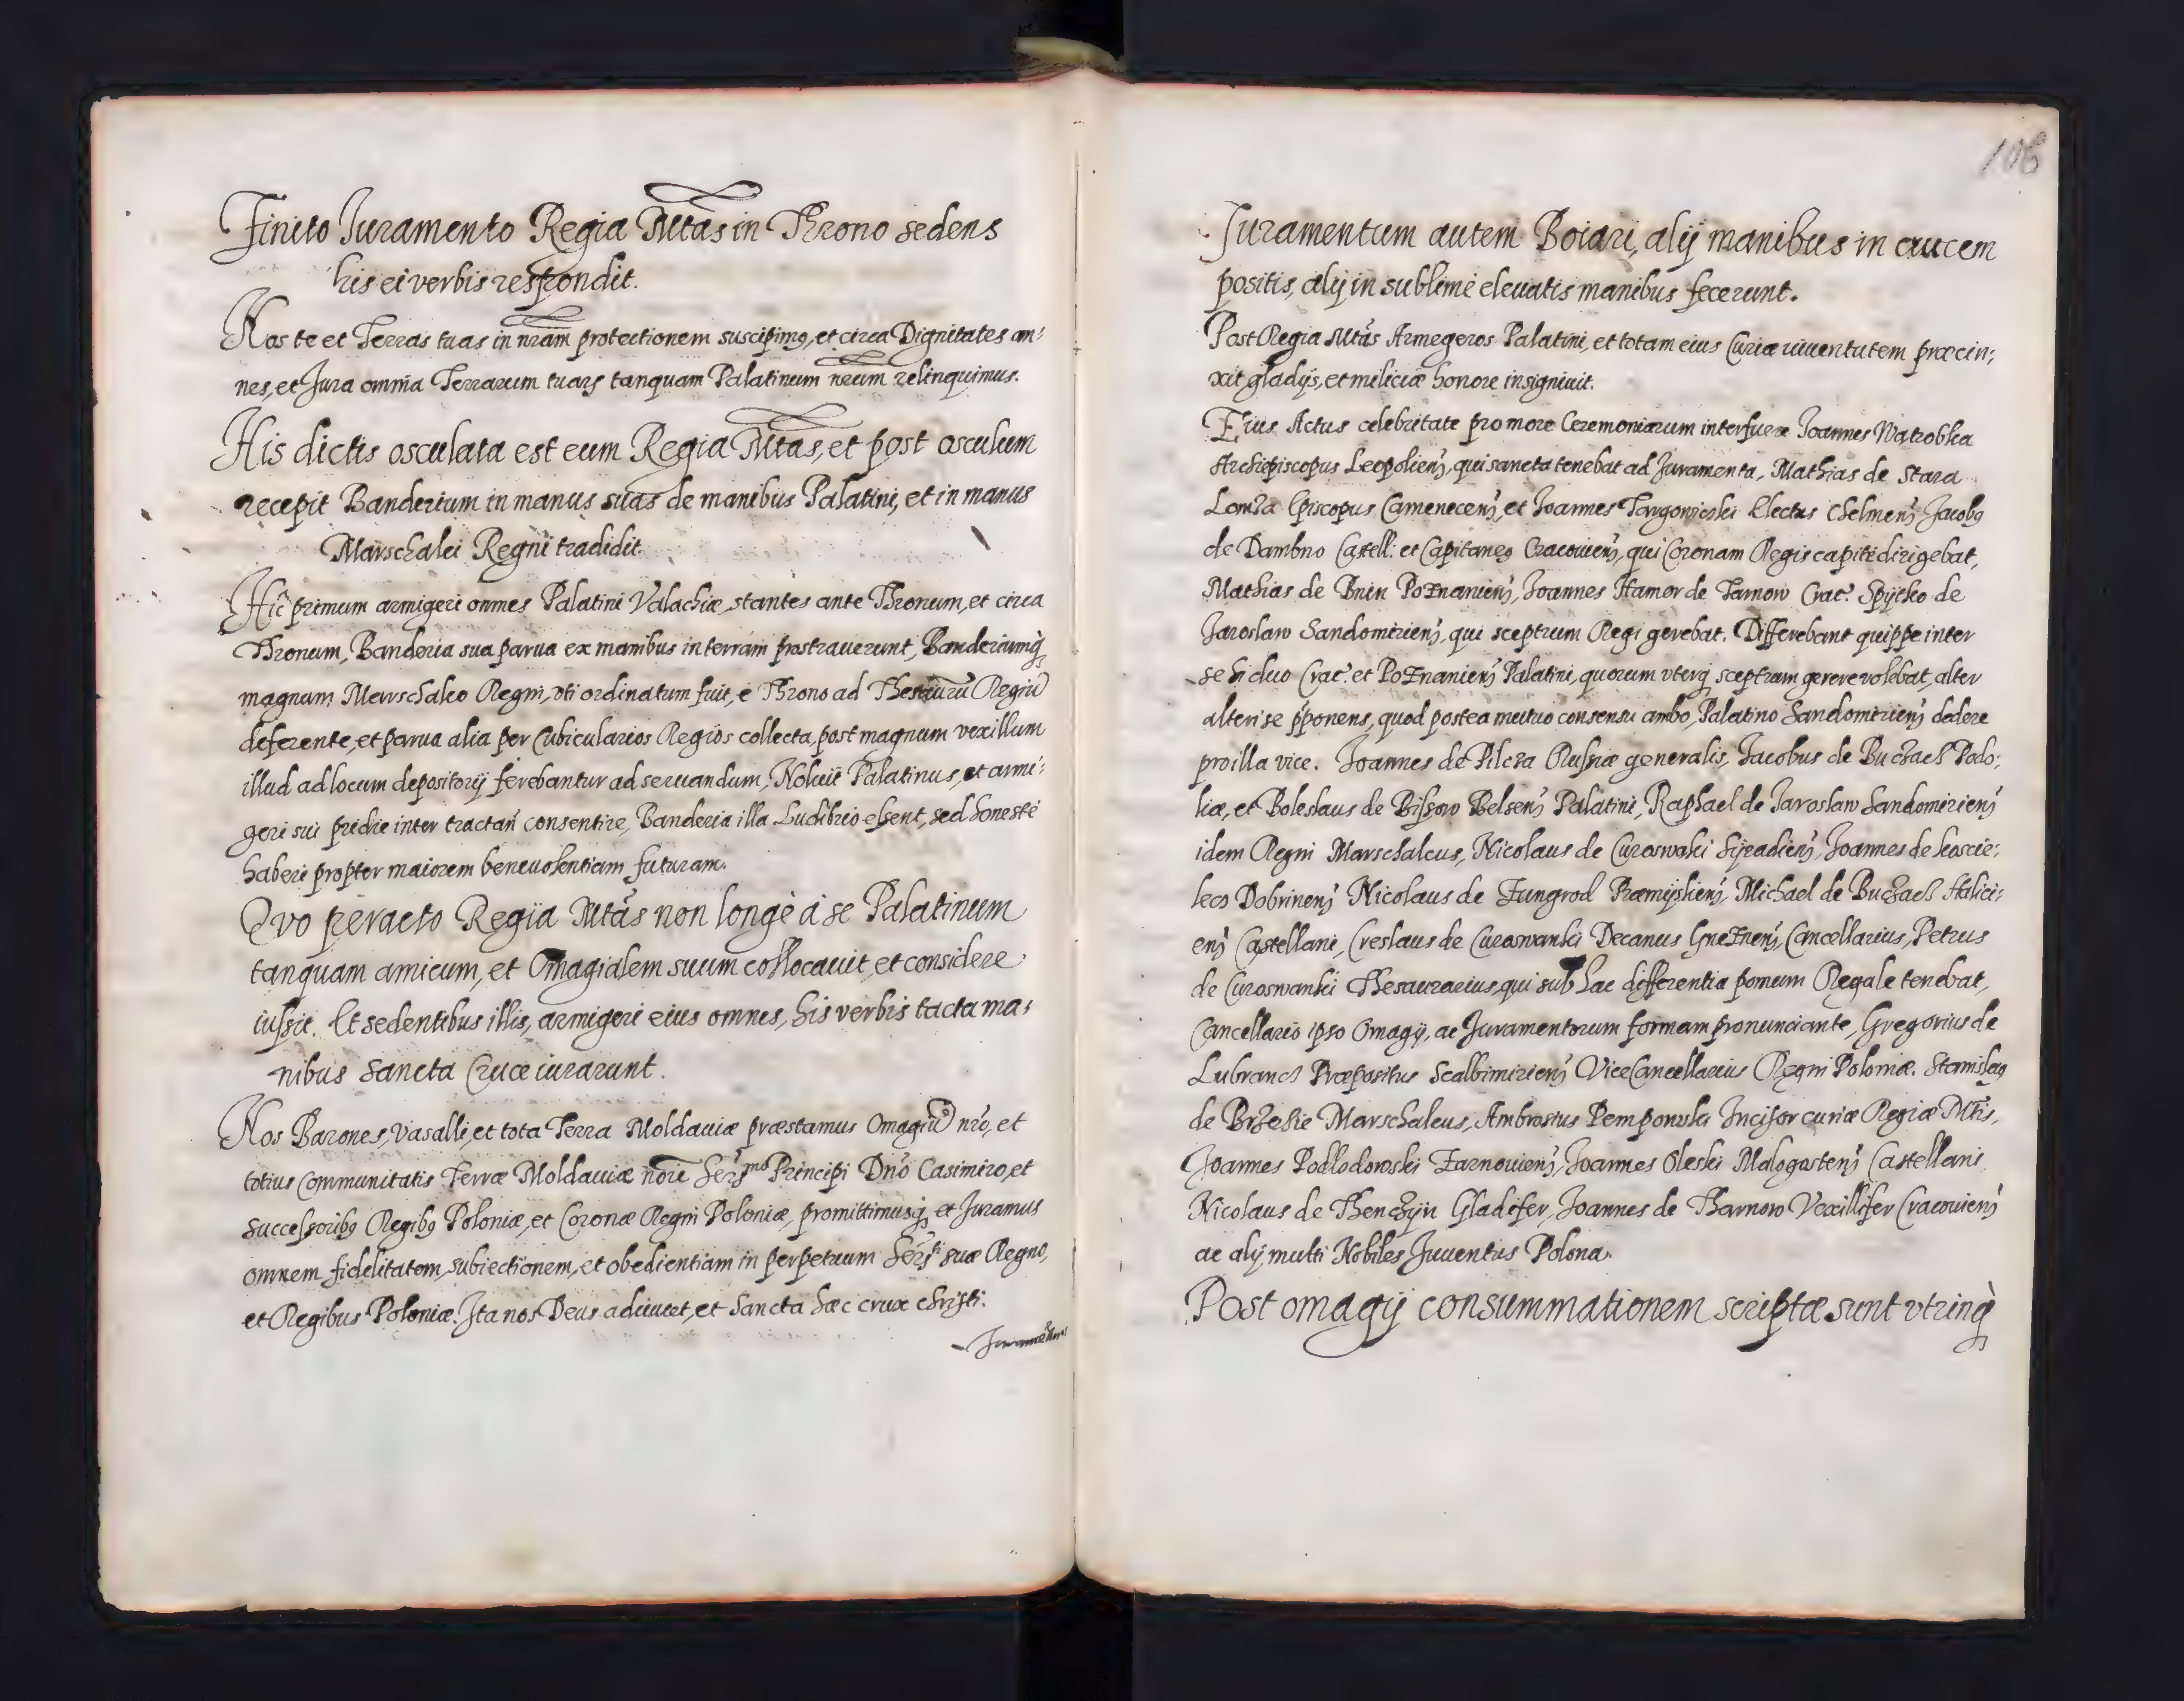 Finito Juramento Regia Mtas in Throno sedens
his ei verbis respondit.
Nos te et Terras tuas in nram protectionem suscipimq, et circa Dignitates om:
nes, et Jura omnia Terrarum tuarz tanquam Palatinum nrum relinquimus.
His dictis osculata est eum Regia Mtas, et post osculum
recepit Banderium in manus suas de manibus Palatini, et in manus
Marschalci Regni tradidit.
Hic primum armigeri omnes Palatini Valachiæ, stantes ante Thronum, et circa
Thronum, Banderia sua parua ex manibus in terram prostrauerunt, Banderiumq,
magnum Marschalco Regni, vti ordinatum fuit, e Throno ad Thesaurũ Regiũ
deferente, et parua alia per Cubicularios Regios collecta, post magnum vexillum
illud ad locum depositorij ferebantur ad seruandum, Noluit Palatinus, et armi:
geri sui pridie inter tractan̄ consentire, Banderia illa Ludibrio essent, sed honestè
haberi propter maiorem beneuolentiam futuram.
Qvo peracto Regia Mtas non longè à se Palatinum
tanquam amicum, et Omagialem suum collocauit, et considere
iussit. Et sedentibus illis, armigeri eius omnes, his verbis tacta ma:
nibus Sancta Cruce iurarunt.
Nos Barones, Vasalli, et tota Terra Moldauiæ præstamus Omagiũ nro, et
totius Communitatis Terræ Moldauiæ noie Serzmo Principi Dno Casimiro, et
Successoribq Regibq Poloniæ, et Coronæ Regni Poloniæ, promittimusq, et Juramus
omnem fidelitatem, subiectionem, et obedientiam in perpetuum Serzti suæ Regno,
et Regibus Poloniæ. Ita nos Deus adiuuet, et Sancta hæc crux Christi.
Juramentum
106
Juramentum autem Boiari, alij manibus in crucem
positis, alij in sublime eleuatis manibus fecerunt.
Post Regia Mtas Armegeros Palatini, et totam eius Curiæ iuuentutem præcin:
xit gladijs, et miliciæ honore insigniuit.
Eius Actus celebritate pro more Ceremoniarum interfuere Joannes Watrobka
Archiepiscopus Leopolienz, qui sancta tenebat ad Juramenta, Mathias de Stara
Lomza Episcopus Camenecenz, et Joannes Targowicski Electus Chelmenz Jacobq
de Dambno Castell: et Capitaneq Cracouienz, qui Coronam Regis capiti dirigebat,
Mathias de Bnin Poznanienz, Joannes Hamor de Tarnow Crac. Spytko de
Jaroslaw Sandomirienz, qui sceptrum Regi gerebat. Differebant quippe inter
se hi duo Crac. et Poznanienz Palatini, quorum vterq, sceptrum gerere volebat, alter
alteri se pponens, quod postea mutuo consensu ambo, Palatino Sandomirienz dedere
pro illa vice. Joannes de Pilcza Russiæ generalis, Jacobus de Buczacz Podo:
liæ, et Boleslaus de Bissow Belsenz Palatini, Raphael de Jaroslaw Sandomirienz
idem Regni Marschalcus, Nicolaus de Curoswaki Syradienz, Joannes de koscie:
lecz Dobrinenz Nicolaus de Zungrod Præmislienz Michael de Buczacz Halici:
enz Castellani, Creslaus de Curoswanki Decanus Gneznenz, Cancellarius, Petrus
de Curoswanki Thesaurarius, qui sub hac differentia pomum Regale tenebat,
Cancellario ipso Omagij, ac Juramentorum formam pronunciante, Gregorius de
Lubrancz Præpositus Scalbimirienz ViceCancellarius Regni Poloniæ. Stanislaq
de Brzezie Marschalcus, Ambrosius Pemponski Incisor curiæ Regiæ Mtis,
Joannes Podlodowski Zarnouienz, Joannes Oleski Malogostenz Castellani,
Nicolaus de Thenczyn Gladifer, Joannes de Tharnow Vexillifer Cracouienz
ac alij multi Nobiles Juuentus Polona.
Post omagij consummationem scriptæ sunt vtrinq